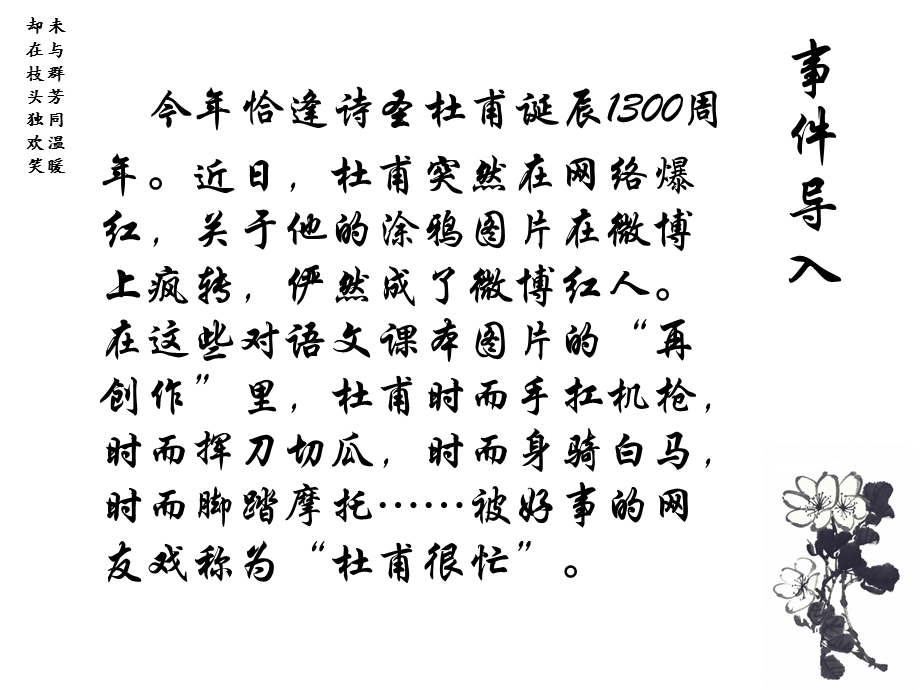 未与群芳同温暖
却在枝头独欢笑
事件导入
今年恰逢诗圣杜甫诞辰1300周
年。近日，杜甫突然在网络爆
红，关于他的涂鸦图片在微博
上疯转，俨然成了微博红人。
在这些对语文课本图片的“再
创作”里，杜甫时而手扛机枪，
时而挥刀切瓜，时而身骑白马，
时而脚踏摩托……被好事的网
友戏称为“杜甫很忙”。